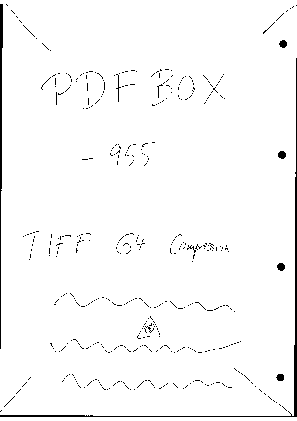 PDF BOX
- 955
TIFF G4 Compression